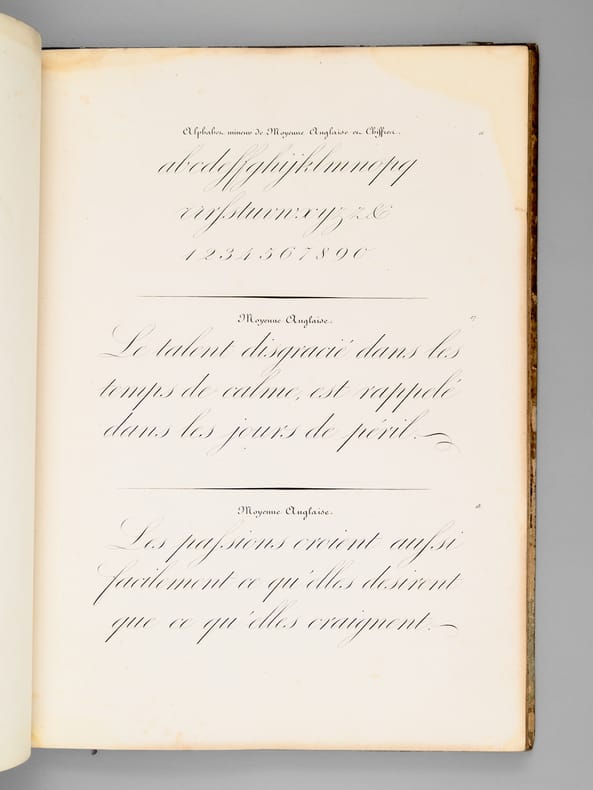 Alphabet mineur de Moyenne Anglaise et Chiffres.
16
abcdeffghijklmnopq
rrrſstuvwxyzz&
1234567890
Moyenne Anglaise.
17
Le talent disgracié dans les
temps de calme, est rappelé
dans les jours de péril.
Moyenne Anglaise.
18
Les paſsions croient auſsi
facilement ce qu'elles desirent
que ce qu'elles craignent.